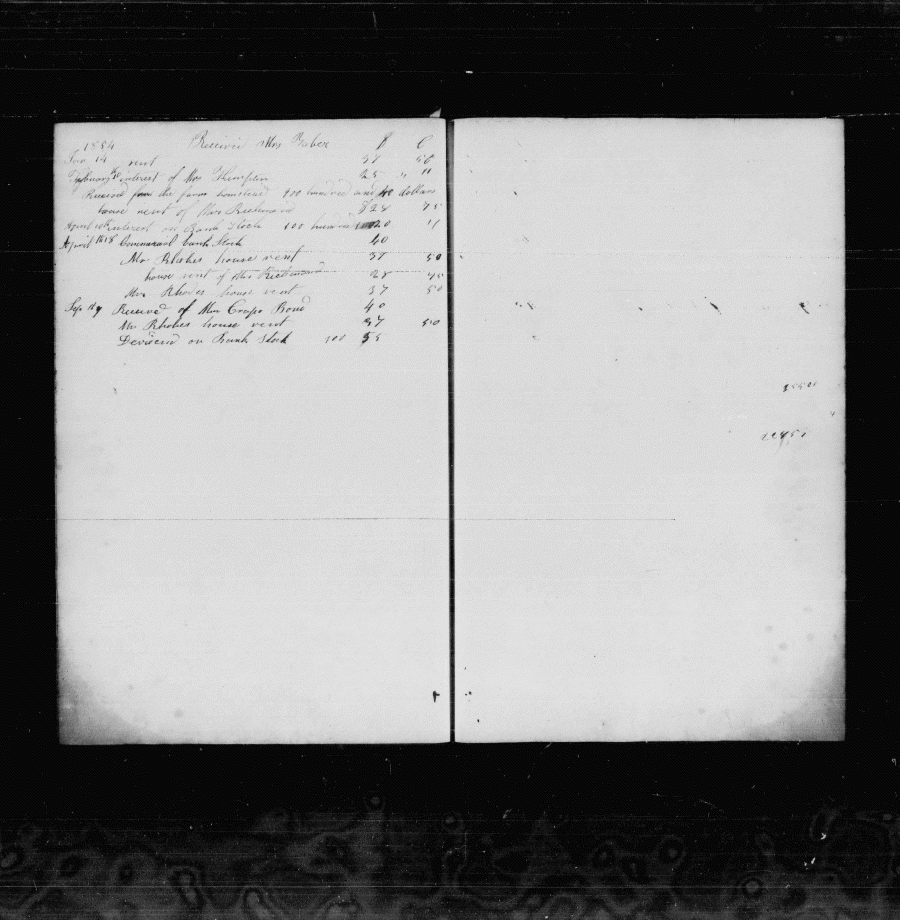 1884 Received Mrs Taber $ C
Jan 14 rent 37 50
interest of Mrs Thompson 25 " "
Received from the farm homestead 400 hundred and 40 dollars
house rent of Mrs Richmond $28 75
April interest on Bank Stock 100 hundred 20 "
April 1818 Commercial bank Stock 40
Mr Rhodes house rent 37 50
house rent of Mrs Richmond 28 75
Mrs Rhodes house rent 37 50
Sep Received of Mrs Crapo Bond 40
Mr Rhodes house rent 37 50
Devidend on Bank Stock 100 55